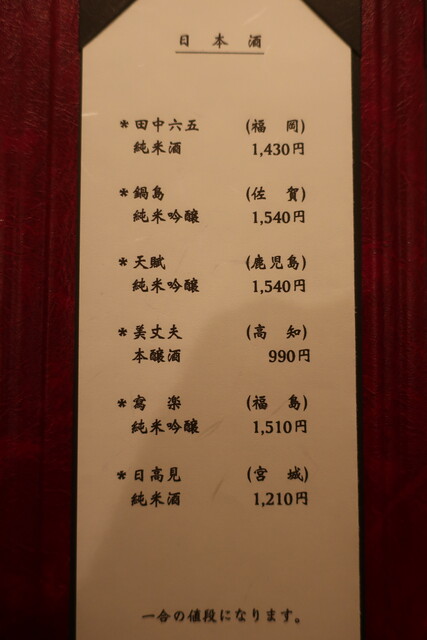 日本酒
*田中六五 (福岡)
純米酒 1,430円
*鍋島 (佐賀)
純米吟醸 1,540円
*天賦 (鹿児島)
純米吟醸 1,540円
*美丈夫 (高知)
本醸酒 990円
*寫楽 (福島)
純米吟醸 1,510円
*日高見 (宮城)
純米酒 1,210円
一合の値段になります。